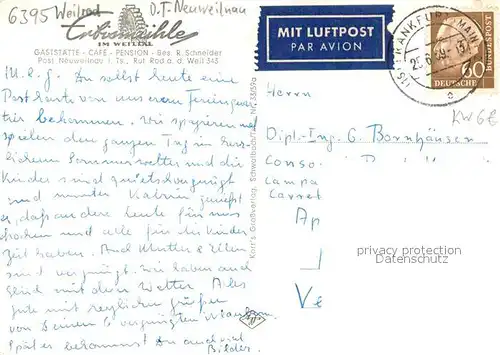 6395 Weilrod O.T. Neuweilnau
Erbismühle
IM WEILTAL
GASTSTÄTTE - CAFÉ - PENSION - Bes. R. Schneider
Post Neuweilnau i. Ts., Ruf Rod a. d. Weil 343
MIT LUFTPOST
PAR AVION
FRANKFURT
60
DEUTSCHE BUNDESPOST
KW 6€
M. l. G. Du selbst heute eine
Postkarte von unserem Ferienquar
tier bekommen. Wir spazieren und
spielen den ganzen Tag in herr-
lichem Sommerwetter und die
Kinder sind quietschvergnügt
und munter. Katrin genießt
er, daß andere Leute für uns
kochen und alle für die Kinder
Zeit haben. Auch Mutter &
sind vergnügt. Wir haben auch
Glück mit dem Wetter. Alles
gute mit herzlichen Grüßen
von Deinen 6 vergnügten
Später bekommst Du auch viel
Bilder.
Herrn
Dipl.-Ing. G. Bornhäusen
Conso
Campa
Carret
Ap
Ve
privacy protection
Datenschutz